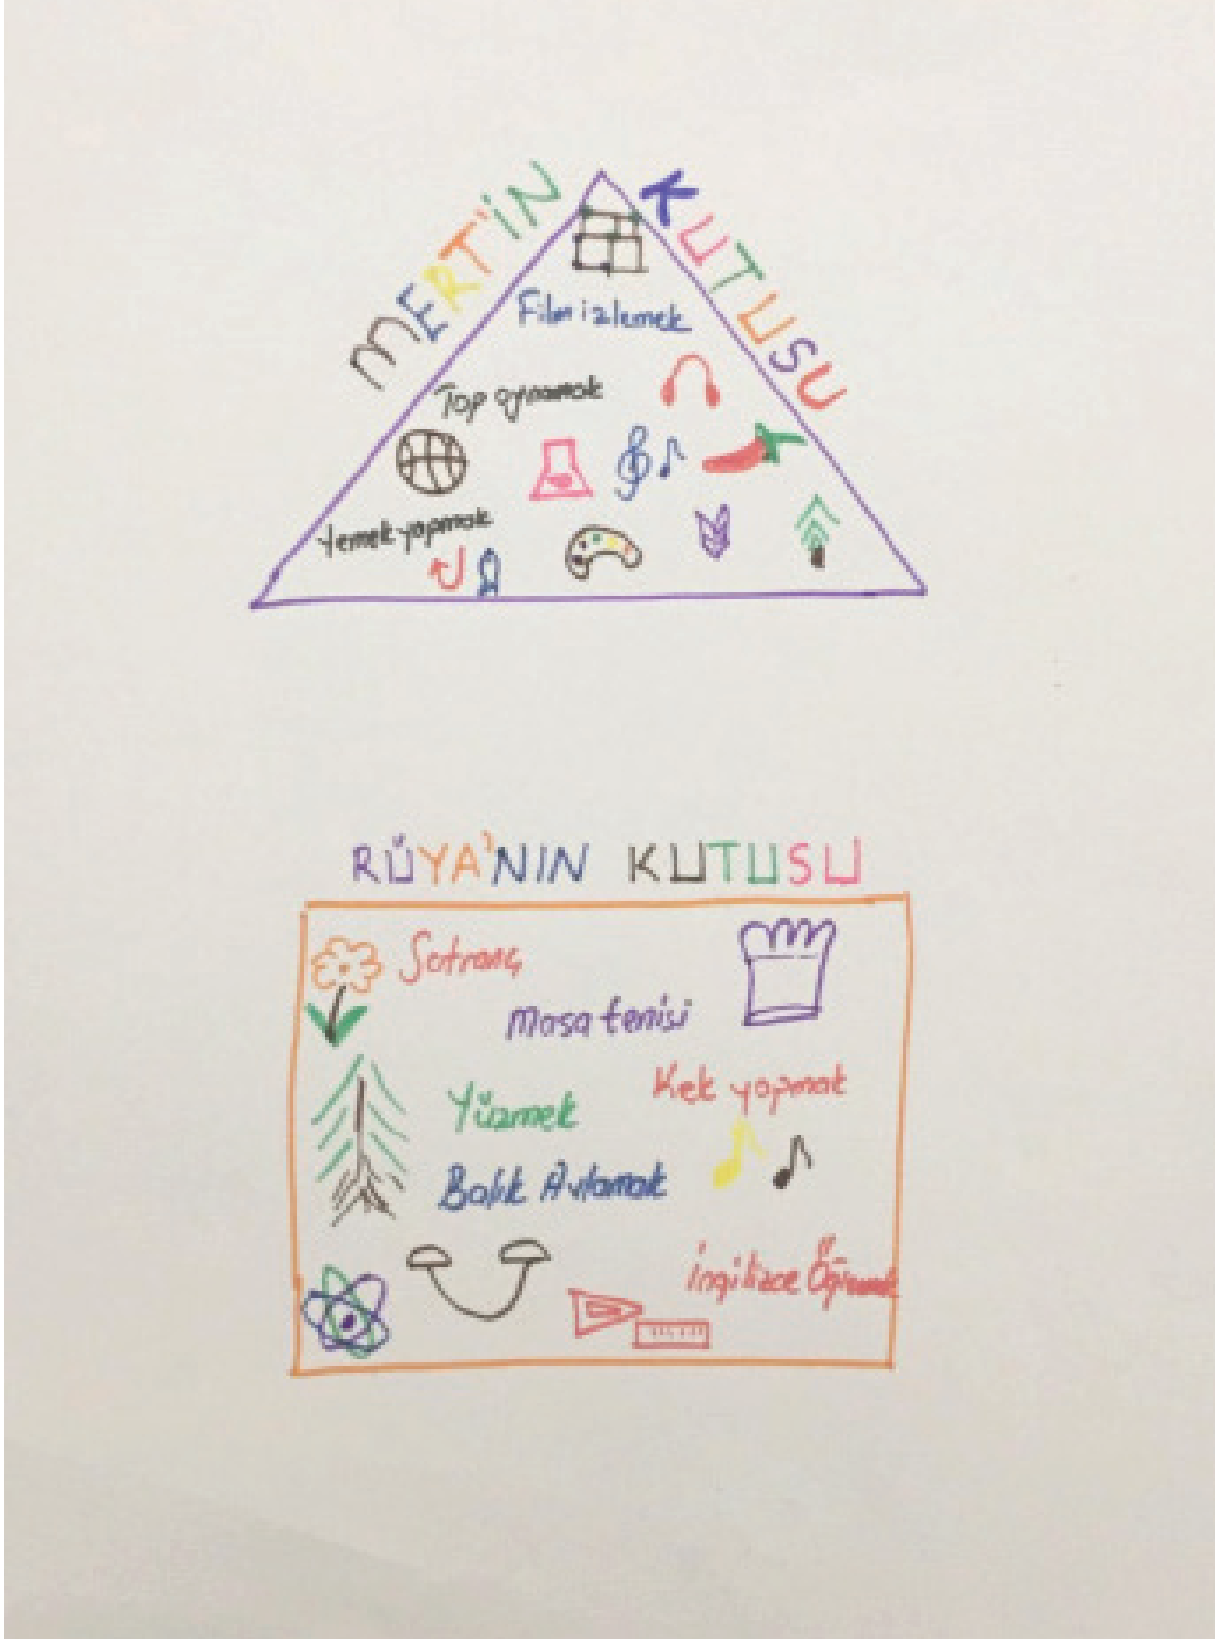 MERT'İN KUTUSU
Film izlemek
Top oynamak
Yemek yapmak
RÜYA'NIN KUTUSU
Satranç
Masa tenisi
Kek yapmak
Yüzmek
Balık Avlamak
İngilizce Öğrenmek